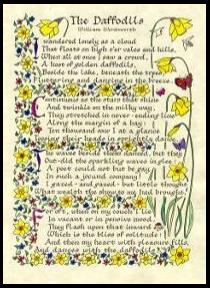 The Daffodils
William Wordsworth
I wandered lonely as a cloud
That floats on high o'er vales and hills,
When all at once I saw a crowd,
A host of golden daffodils,
Beside the lake, beneath the trees
Fluttering and dancing in the breeze.
Continuous as the stars that shine
And twinkle on the milky way,
They stretched in never-ending line
Along the margin of a bay:
Ten thousand saw I at a glance
their heads in sprightly dance
The waves beside them danced, but they
Out-did the sparkling waves in glee:
A poet could not but be gay
In such a jocund company!
I gazed-and gazed-but little thought
What wealth the show to me had brought:
For oft, when on my couch I lie
In vacant or in pensive mood,
They flash upon that inward
Which is the bliss of solitude!
And then my heart with pleasure fills,
And dances with the daffodils.